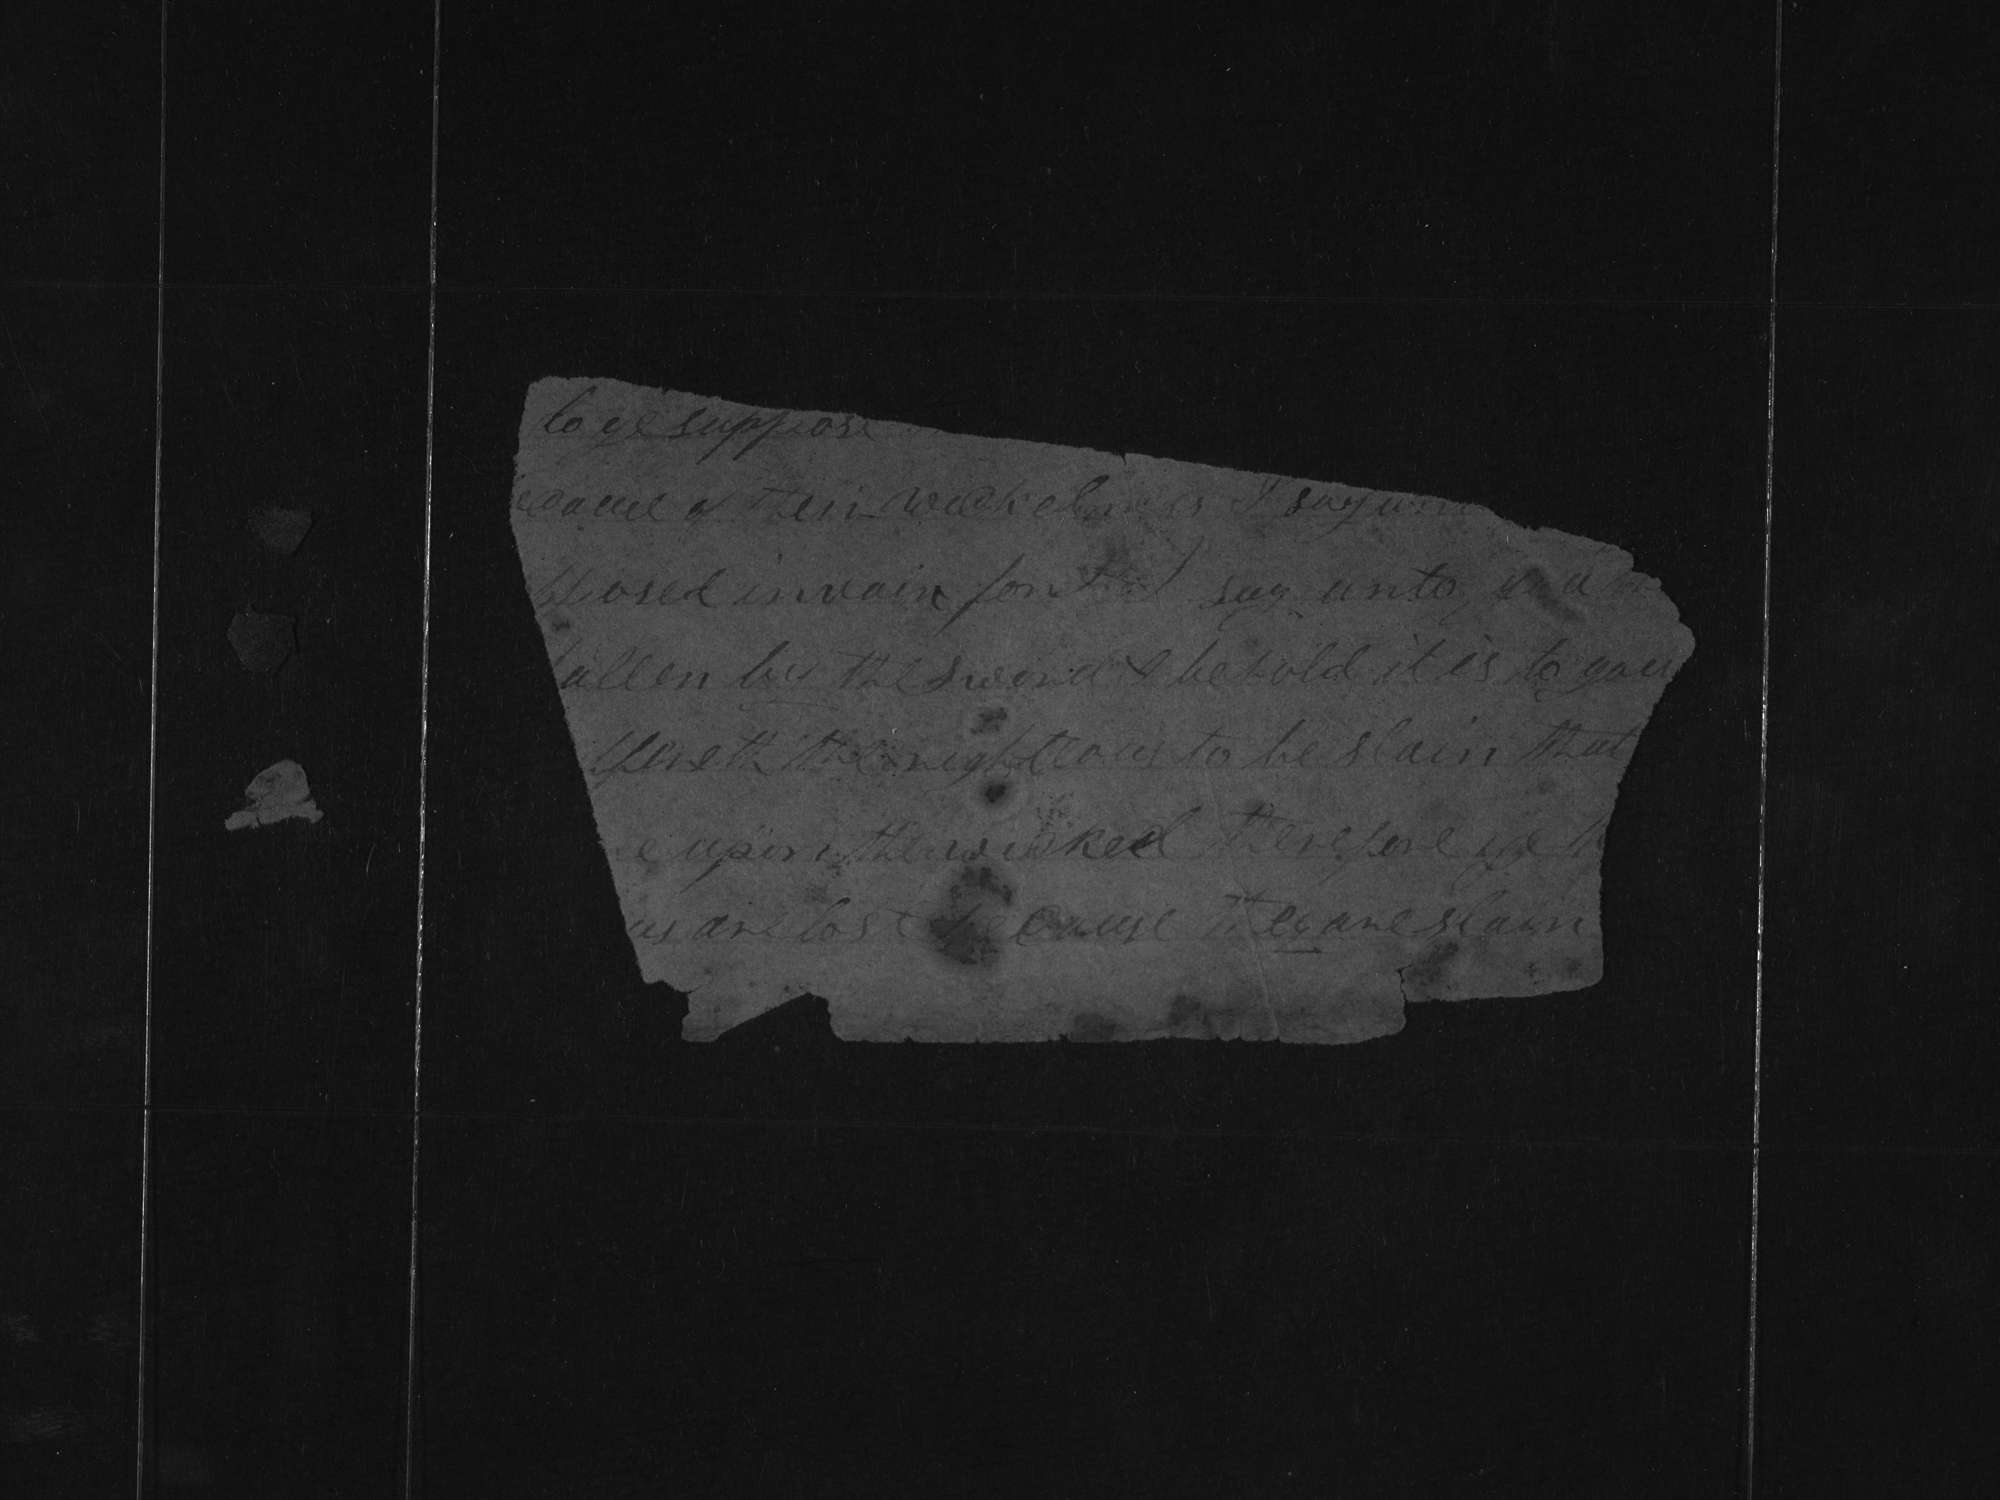 do ye suppose
because of their wickedness I say un
pposed in vain for I say unto you
fallen by the sword & behold it is to your
ffereth the righteous to be slain that
e upon the wicked therefore ye
us are lost because they are slain